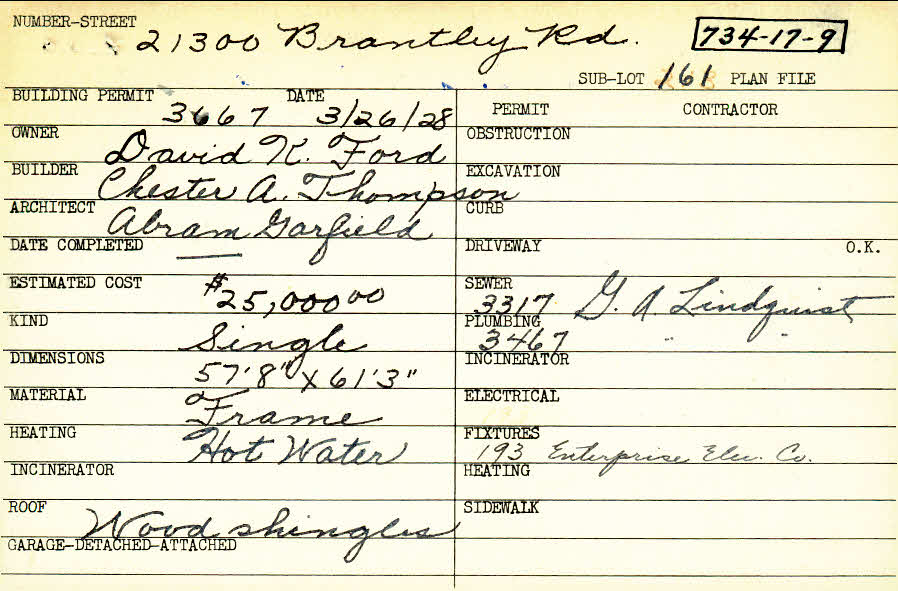 NUMBER-STREET
21300 Brantley Rd.
734-17-9
SUB-LOT 161 PLAN FILE
BUILDING PERMIT DATE
3667 3/26/28
PERMIT CONTRACTOR
OWNER David K. Ford
OBSTRUCTION
BUILDER Chester A. Thompson
EXCAVATION
ARCHITECT Abram Garfield
CURB
DATE COMPLETED
DRIVEWAY O.K.
ESTIMATED COST $25,000.00
SEWER
3317 G. A. Lindquist
KIND Single
PLUMBING
3467 " "
DIMENSIONS 57'8" x 61'3"
INCINERATOR
MATERIAL Frame
ELECTRICAL
HEATING Hot Water
FIXTURES
193 Enterprise Elec. Co.
INCINERATOR
HEATING
ROOF Wood shingles
SIDEWALK
GARAGE-DETACHED-ATTACHED